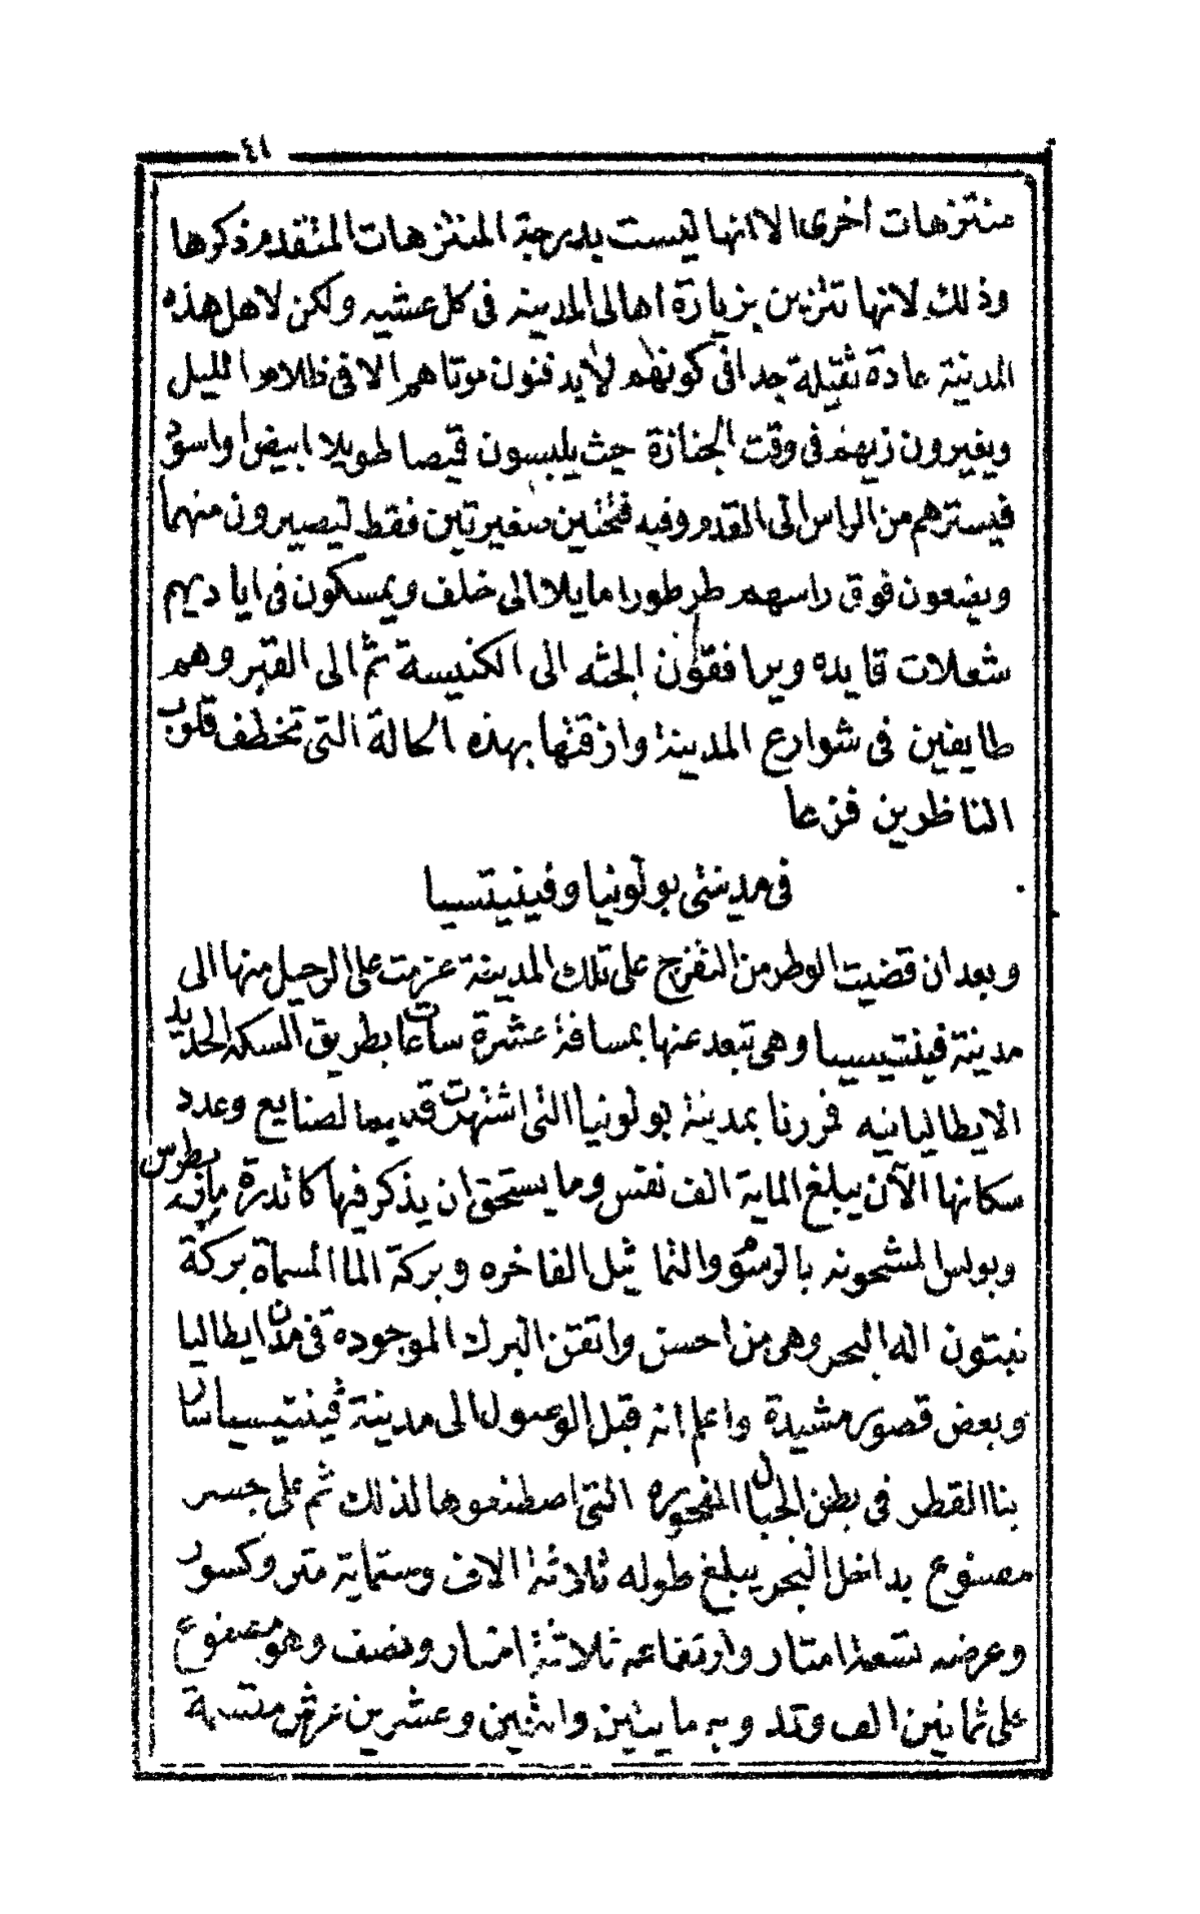 ٤١
منتزهات أخرى الا انها ليست بدرجة المنتزهات المتقدم ذكرها
وذلك لانها تتزين بزيارة اهالى المدينه فى كل عشيه ولكن لاهل هذه
المدينة عادة ثقيلة جدا فى كونهم لا يدفنون موتاهم الا فى ظلام الليل
ويغيرون زيهم فى وقت الجنازة حيث يلبسون قميصا طويلا ابيض او اسود
فيسترهم من الراس الى القدم وفيه فتحتين صغيرتين فقط ليصيرون منهما
ويضعون فوق راسهم طرطورا مايلا الى خلف ويمسكون فى اياديهم
شعلات قايده ويرافقون الجثه الى الكنيسة ثم الى القبر وهم
طايفين فى شوارع المدينة وازقتها بهذه الحالة التى تخطف قلوب
الناظرين فزعا
فى مدينتى بولونيا وفينيتسيا
وبعد ان قضيت الوطر من التفرج على تلك المدينة عزمت على الرحيل منها الى
مدينة فينتيسيا وهى تبعد عنها بمسافة عشرة ساعات بطريق السكه الحديد
الايطاليانيه فمررنا بمدينة بولونيا التى اشتهرت قديما لصنايع وعدد
سكانها الآن يبلغ الماية الف نفس وما يستحق ان يذكر فيها كاتدرة مارية بطرس
وبولس المشحونه بالرسوم والتماثيل الفاخره وبركة الما المسماة بركة
نبتون اله البحر وهى من احسن واتقن البرك الموجوده فى مدن ايطاليا
وبعض قصور مشيدة واعلم انه قبل الوصول الى مدينة فينتيسيا سار
بنا القطر فى بطن الجبال المفحوره التى اصطنعوها لذلك ثم على جسر
مصنوع بداخل البحر يبلغ طوله ثلاثة الاف وستماية متر وكسور
وعرضه تسعة امتار وارتفاعه ثلاثة امتار ونصف وهو مصنوع
على ثمانين الف وتد وبه مايتين واثنين وعشرين عرش منتسبة